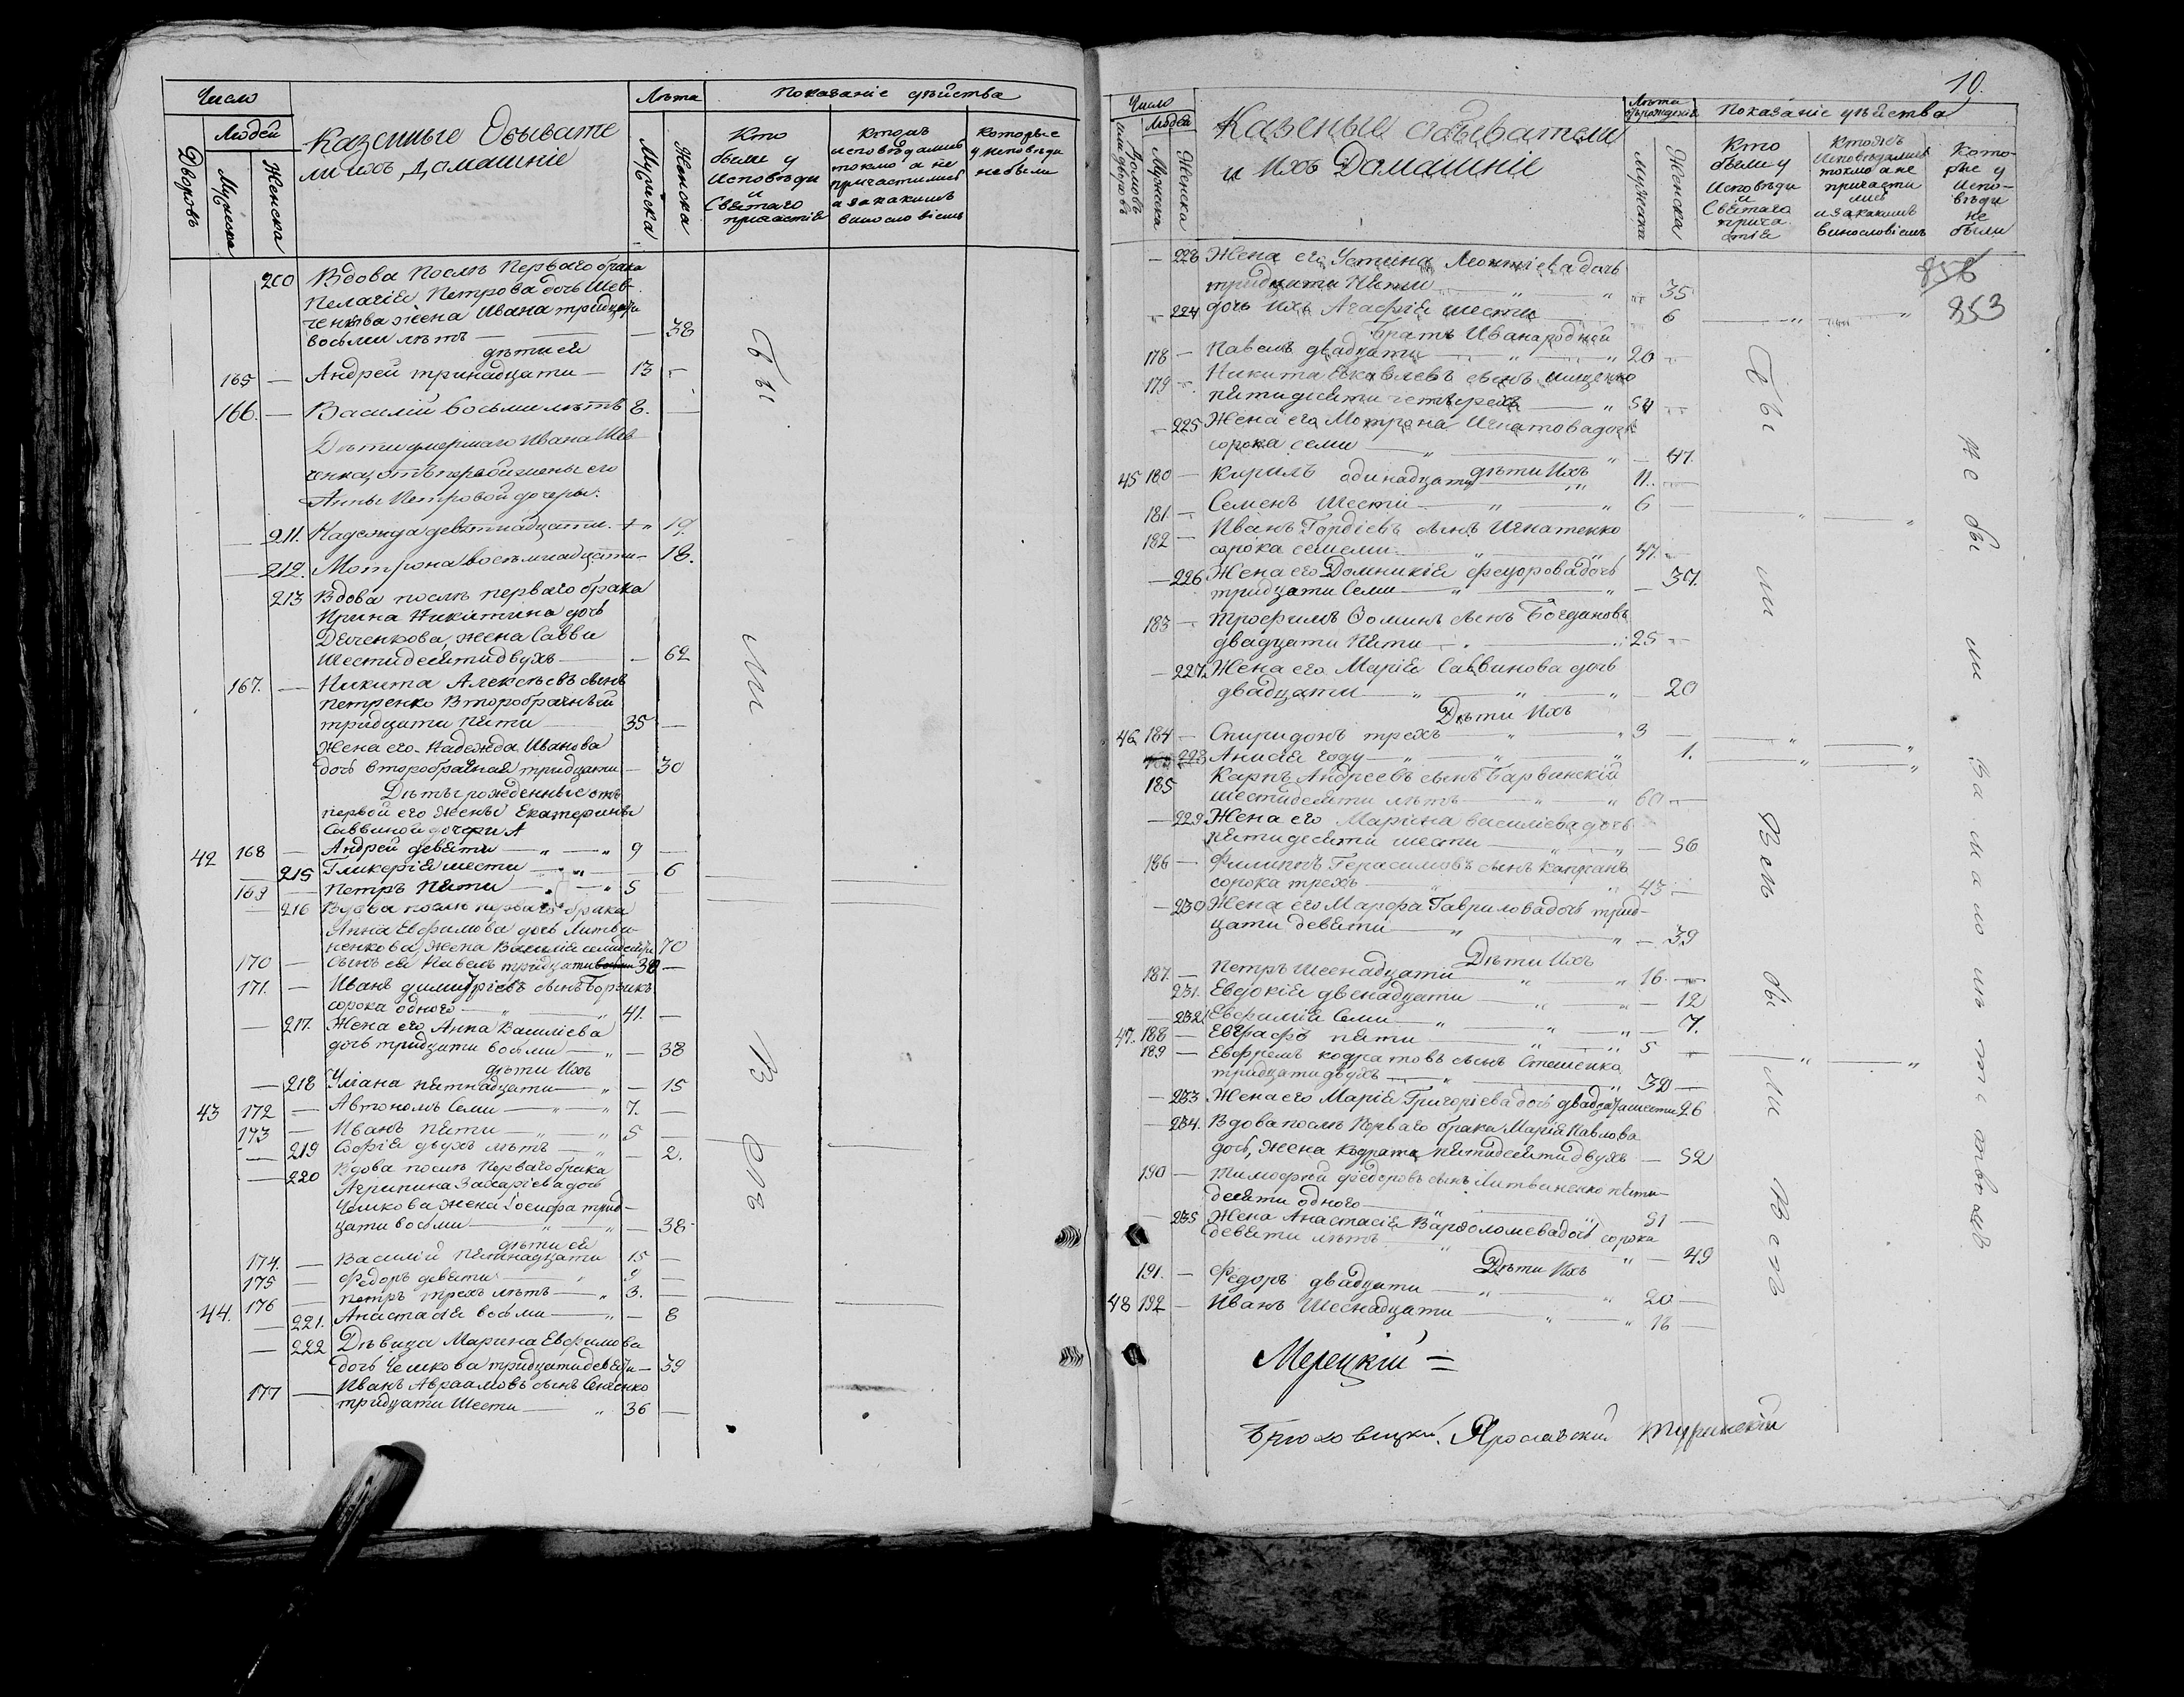 Число
Лѣта
Показаніе дѣйства
Людей
Дворовъ
Мужеска
Женска
Казенные Обывате
ли ихъ домашніе
Мужеска
Женска
Кто
были у
Исповѣди
и
Святаго
причастія
Исповѣдались
токмо а не
причастились
а за какимъ
винословіемъ
Которые
у исповѣди
не были
200 Вдова послѣ Перваго брака
Пелагія Петрова дочь Шев-
ченкова жена Ивана тридцати
восьми лѣтъ — 38
дѣти ея
165 — Андрей тринадцати — 13 —
166. — Василій восьми лѣтъ 8. —
Дѣти умершаго Ивана Шев
ченка отъ первой жены его
Анны Петровой дочеры:
211. Надежда девятнадцати 19.
212. Мотрона восемнадцати — 18.
213 Вдова послѣ перваго брака
Ирина Никитина дочь
жена Савви
Шестидесяти двухъ — 62
167. — Никита Алексѣевъ сынъ
Петренко Второбрачный
тридцати пяти 35 —
Жена его Надежда Иванова
дочь второбрачная тридцати — 30
Дѣти рожденные отъ
первой его жены Екатерины
Саввиной дочери
42 168 — Андрей девяти — „ — „ 9 —
215 Гликерія шести — „ — 6
169 — Петръ пяти — „ 5
— 216 Вдова послѣ перваго брака
Анна Евфимова дочь Литви-
ненкова, жена Василія семидесяти 70
170 — Сынъ ея Павелъ тридцати
171. — Иванъ Димитріевъ сынъ
сорока одного „ „ 41. —
— 217. Жена его Анна Василіева
дочь тридцати восьми — „ — 38
дѣти ихъ
— 218 Уліана пятнадцати — „ — 15
43 172 — Автономъ Семи — „ — „ 7. —
173 — Иванъ пяти — „ — „ 5 —
— 219 Софія двухъ лѣтъ — „ — 2.
— 220 Вдова послѣ Перваго брака
Агрипина Захаріева дочь
жена Іосифа трид-
цати восьми — „ — 38
дѣти ея
174. — Василій пятнадцати 15 —
175 — Федоръ девяти — „ 9 —
44. 176 — Петръ трехъ лѣтъ — „ 3. —
— 221. Анастасія восьми — „ — 8
— 222 Дѣвица Марина Евфимова
дочь тридцати девяти — 39
177 — Иванъ Авраамовъ сынъ
тридцати Шести — „ 36 —
Бы
ли
Всѣ
10.
Число
Людей
Мужеска
Женска
Казеные обыватели
и Ихъ Домашніе
Лѣта
отъ рожденія
Мужеска
Женска
Показаніе дѣйства
Кто
были у
Исповѣди
и
Святаго
прича
стія
Исповѣдались
токмо а не
причасти
лись
и за какимъ
винословіемъ
Кото-
рые у
Испо-
вѣди
не
были
853
— 223 Жена его Устина Леонтіева дочь
тридцати Пяти — „ „ 35
— 224 дочь ихъ Агафія шести — 6
братъ Ивана родной
178 — Павелъ двадцати — „ 20 —
179 — Никита Яковлевъ сынъ
пятидесяти четырехъ — „ 54 —
— 225 Жена его Мотрона Игнатова дочь
сорока семи — „ — „ — 47.
дѣти Ихъ
45 180 — Кирилъ одинадцати 11. —
181. — Семенъ Шести — „ — „ 6
182 — Иванъ Гордіевъ сынъ Игнатенко
сорока семи „ 47. —
— 226 Жена его Домникія Федорова дочь
тридцати Семи — „ „ — 37.
183 — Трофимъ Фоминъ сынъ Богдановъ
двадцати Пяти 25 —
— 227 Жена его Марія Саввинова дочь
двадцати — „ — „ — „ — 20
Дѣти Ихъ
46 184 — Спиридонъ трехъ — „ „ 3 —
228 Анисія году — „ — „ — „ 1.
185 Карпъ Андреевъ сынъ Барвинскій
шестидесяти лѣтъ — „ — „ 60 —
— 229 Жена его Марина Василіева дочь
пятидесяти шести „ „ — 56
186 — Филипъ Герасимовъ сынъ
сорока трехъ 43 —
— 230 Жена его Марфа Гаврилова дочь трид-
цати девяти — „ „ — 39
Дѣти Ихъ
187. — Петръ Шеснадцати „ „ 16. —
231. Евдокія двенадцати — „ „ — 12
— 232 Евфимія Семи — „ „ „ — 7.
47. 188 — Евграфъ пяти „ „ 5 —
189 — Евфремъ Кодратовъ сынъ
тридцати двухъ 32 —
— 233 Жена его Марія Григоріева дочь двадцати шести 26
— 234. Вдова послѣ Перваго брака Марія Павлова
дочь, жена Кодрата пятидесяти двухъ — 52
190 — Тимофей Федоровъ сынъ Литвиненко пяти-
десяти одного 51 —
— 235 Жена Анастасія Варфоломева дочь сорока
девяти лѣтъ „ „ — 49
Дѣти Ихъ
191. — Федоръ двадцати — „ „ 20 —
48 192 — Иванъ Шеснадцати „ „ 16 —
Бы
ли
Всѣ
бы
ли
Всѣ
не бы ли за малолѣтствомъ
Мерецкій
Брюховецкій. Ярославскій